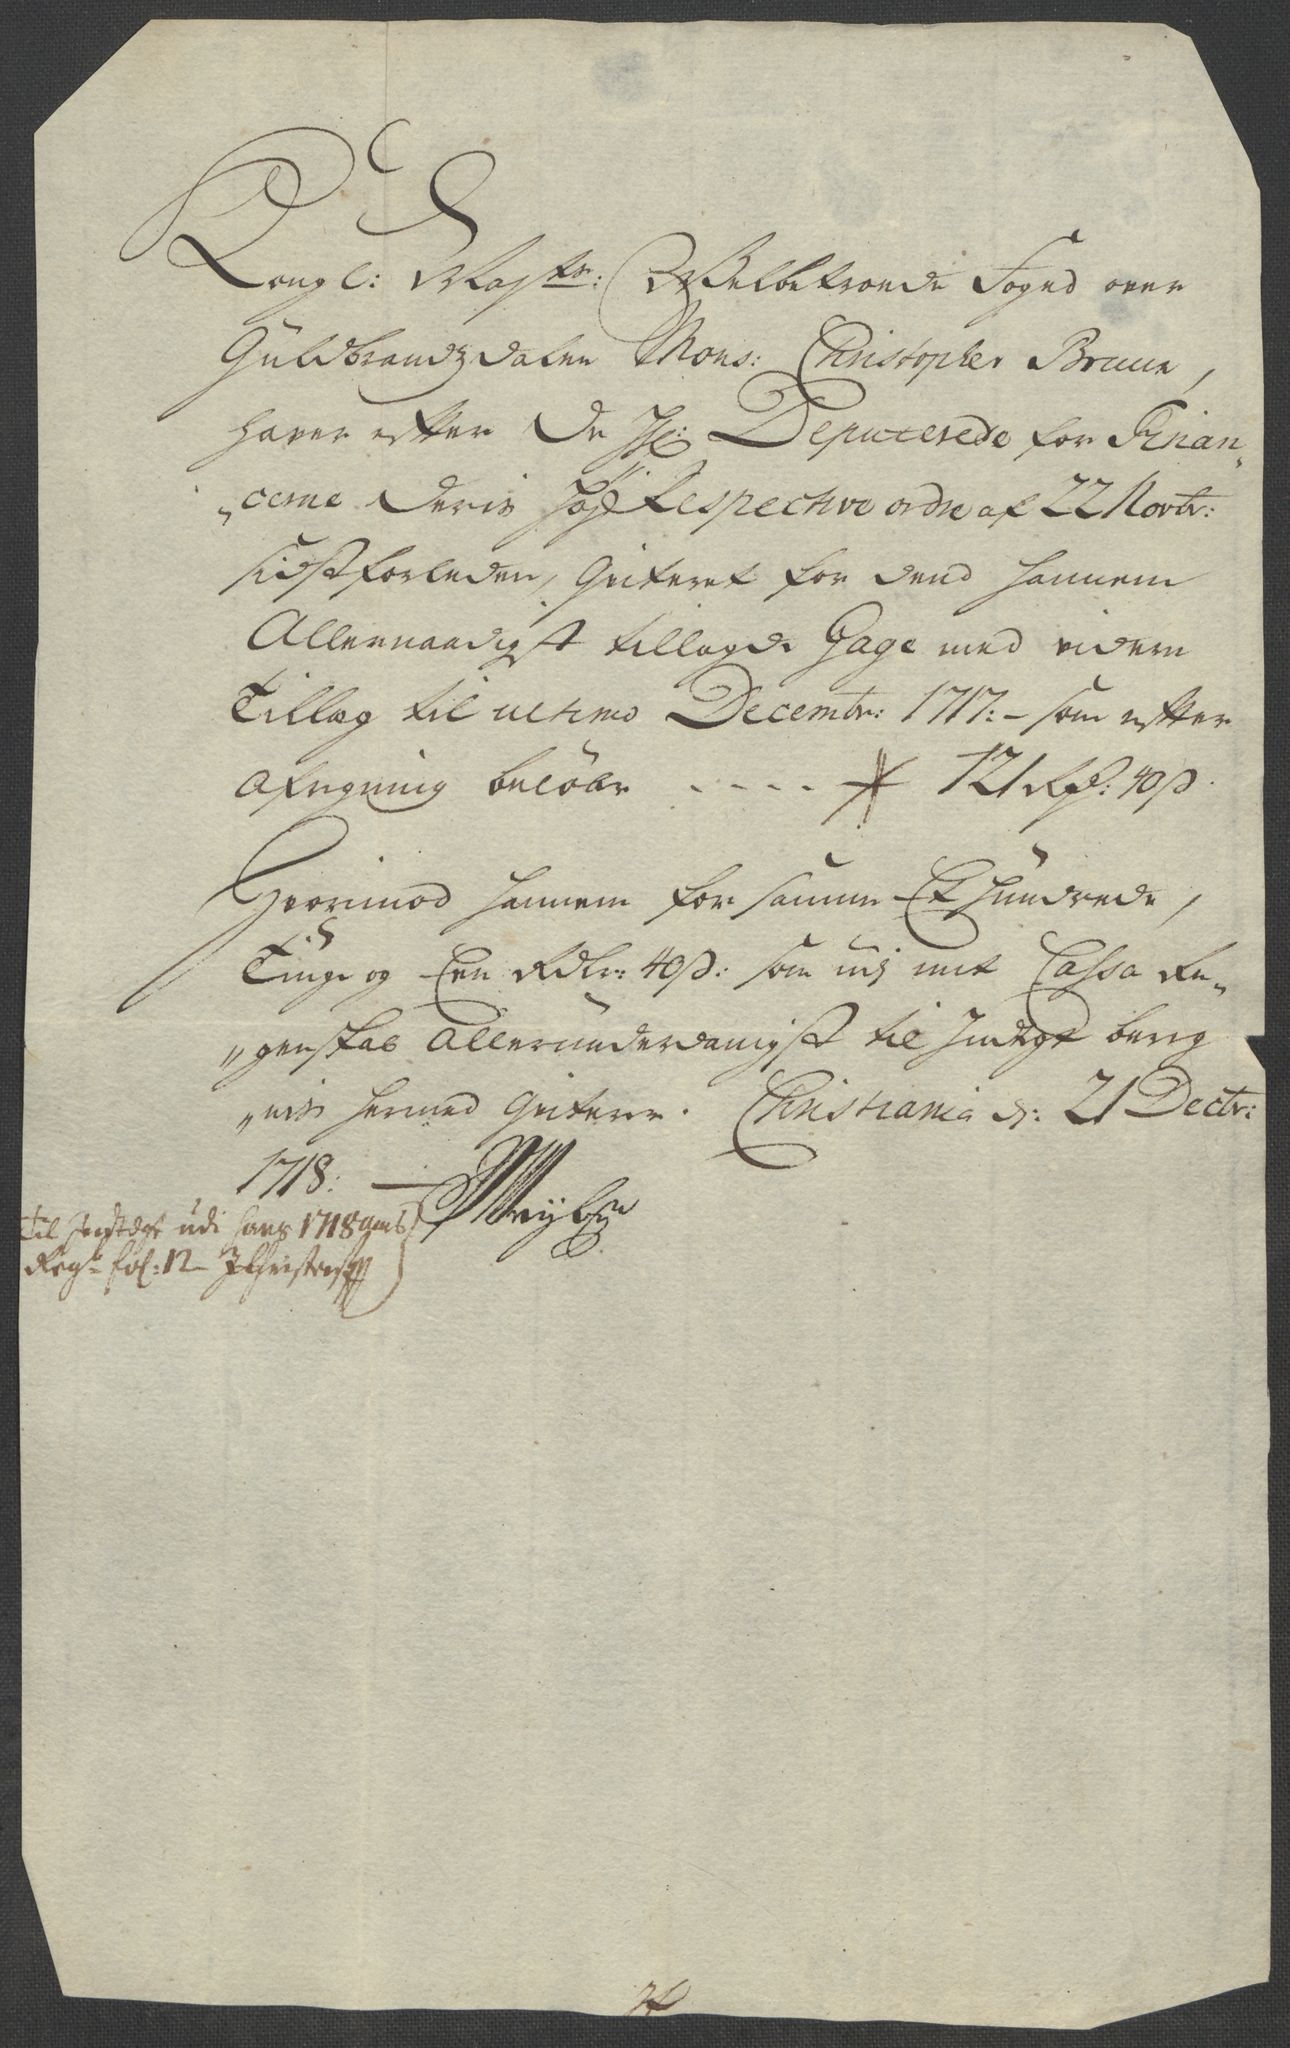 Kongl: Maÿtz: Welbetroede Foged over
Guldbrandzdalen Mons: Christopher Bruun,
haver efter De H: Deputerede for Finan„
„cerne deris Høj Respective ordre af 22 Novbr:
sidstforleden, Qviteret for dend hannem
Allernaadigst tillagde Gage med videre
Tillæg til ultimo Decembr: 1717:- som efter
afregning beløber - - - - 121 Rdr: 40 ß.
Hvorimod hannem for samme Et hundrede,
Tiuge og Een Rdlr: 40 ß: som udj mit Cassa Re„
„genskab allerunderdanigst til Indtegt bereg
„nis hermed Qviterer. Christiania d: 21 Decbr:
1718:
Til Indtegt udi hans 1718 aars
Regn: fol: 12 - J Christensen